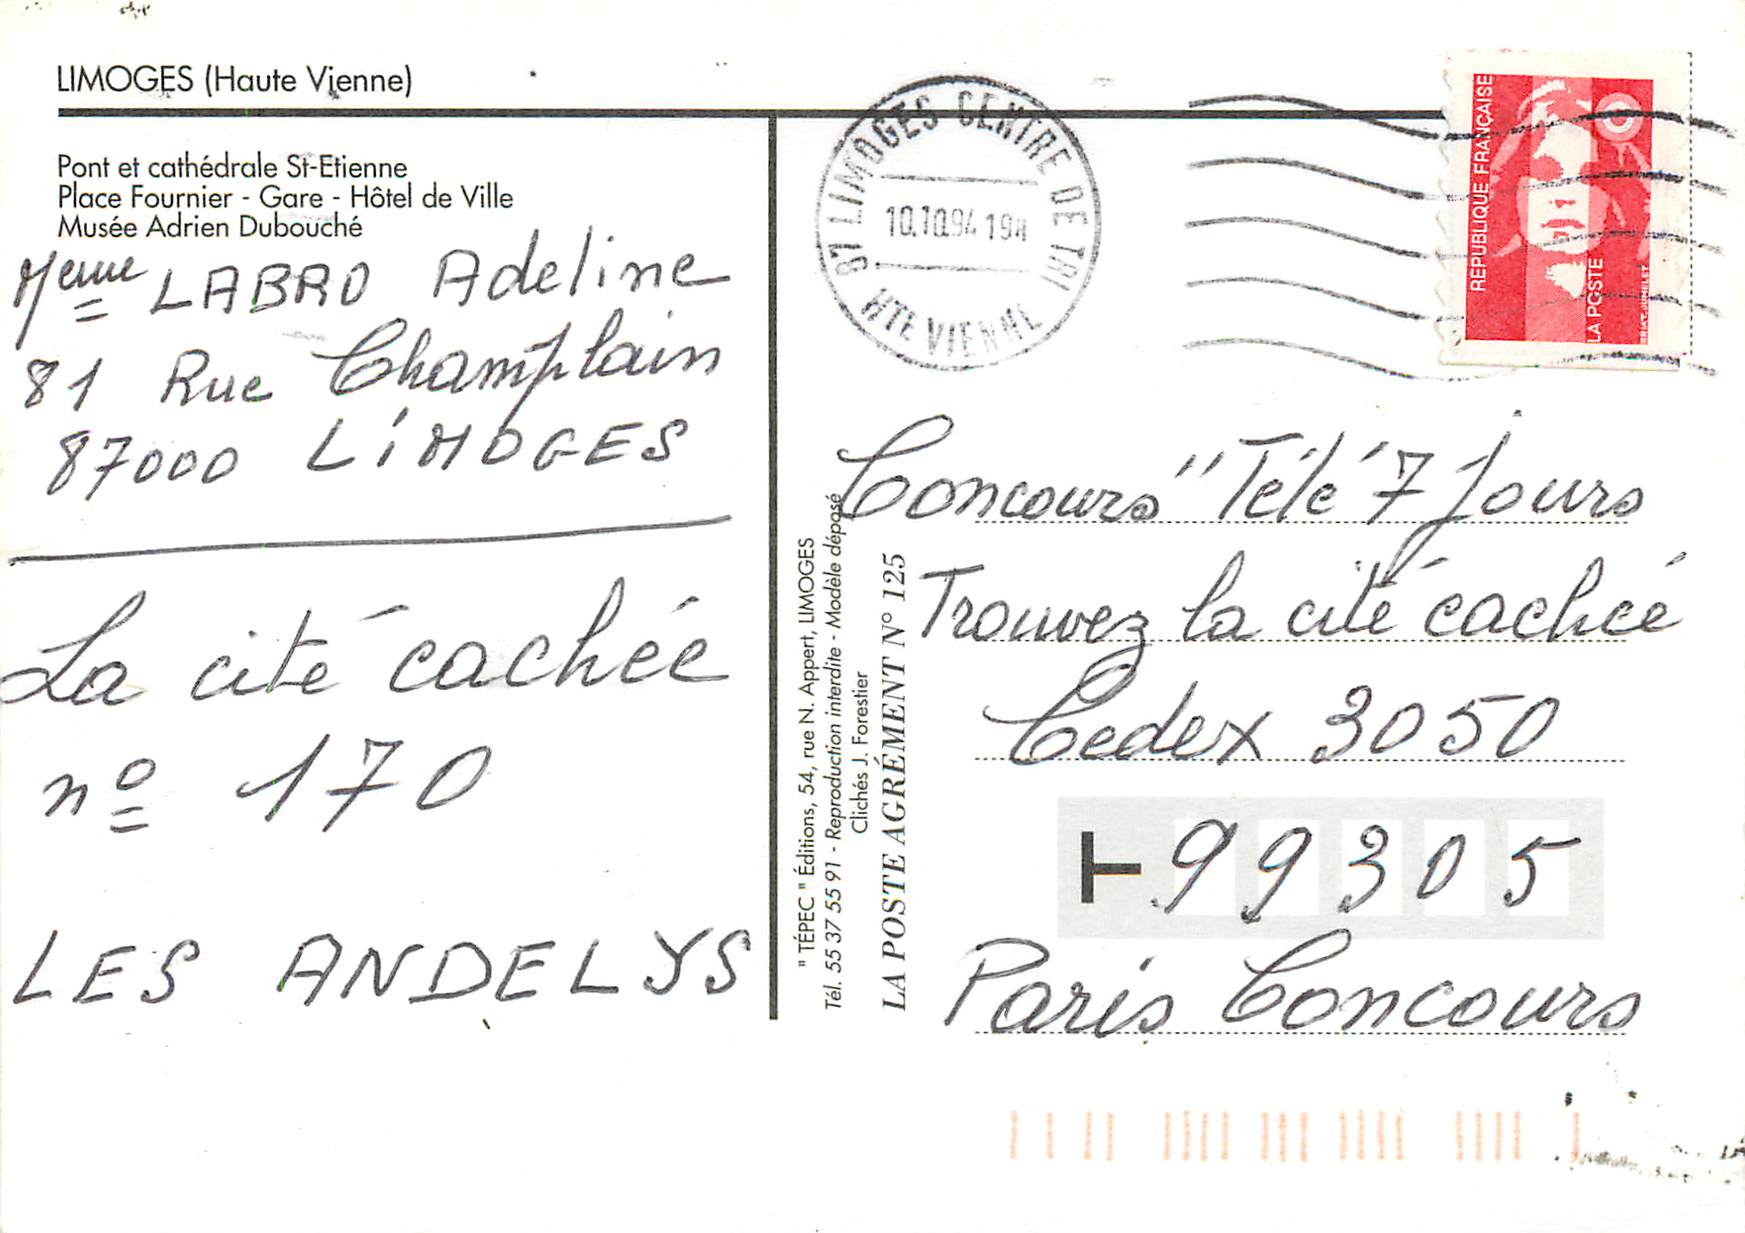 LIMOGES (Haute Vienne)
Pont et cathédrale St-Etienne
Place Fournier - Gare - Hôtel de Ville
Musée Adrien Dubouché
Meme LABRO Adeline
81 Rue Champlain
87000 LIMOGES
La cité cachée
nº 170
LES ANDELYS
87 LIMOGES CENTRE DE TRI
10.10.94 19H
HTE VIENNE
RÉPUBLIQUE FRANÇAISE
LA POSTE
" TÉPEC " Éditions, 54, rue N. Appert, LIMOGES
Tél. 55 37 55 91 - Reproduction interdite - Modèle déposé
Clichés J. Forestier
LA POSTE AGRÉMENT N° 125
Concours "Télé 7 Jours
Trouvez la cité cachée
Cedex 3050
99305
Paris Concours